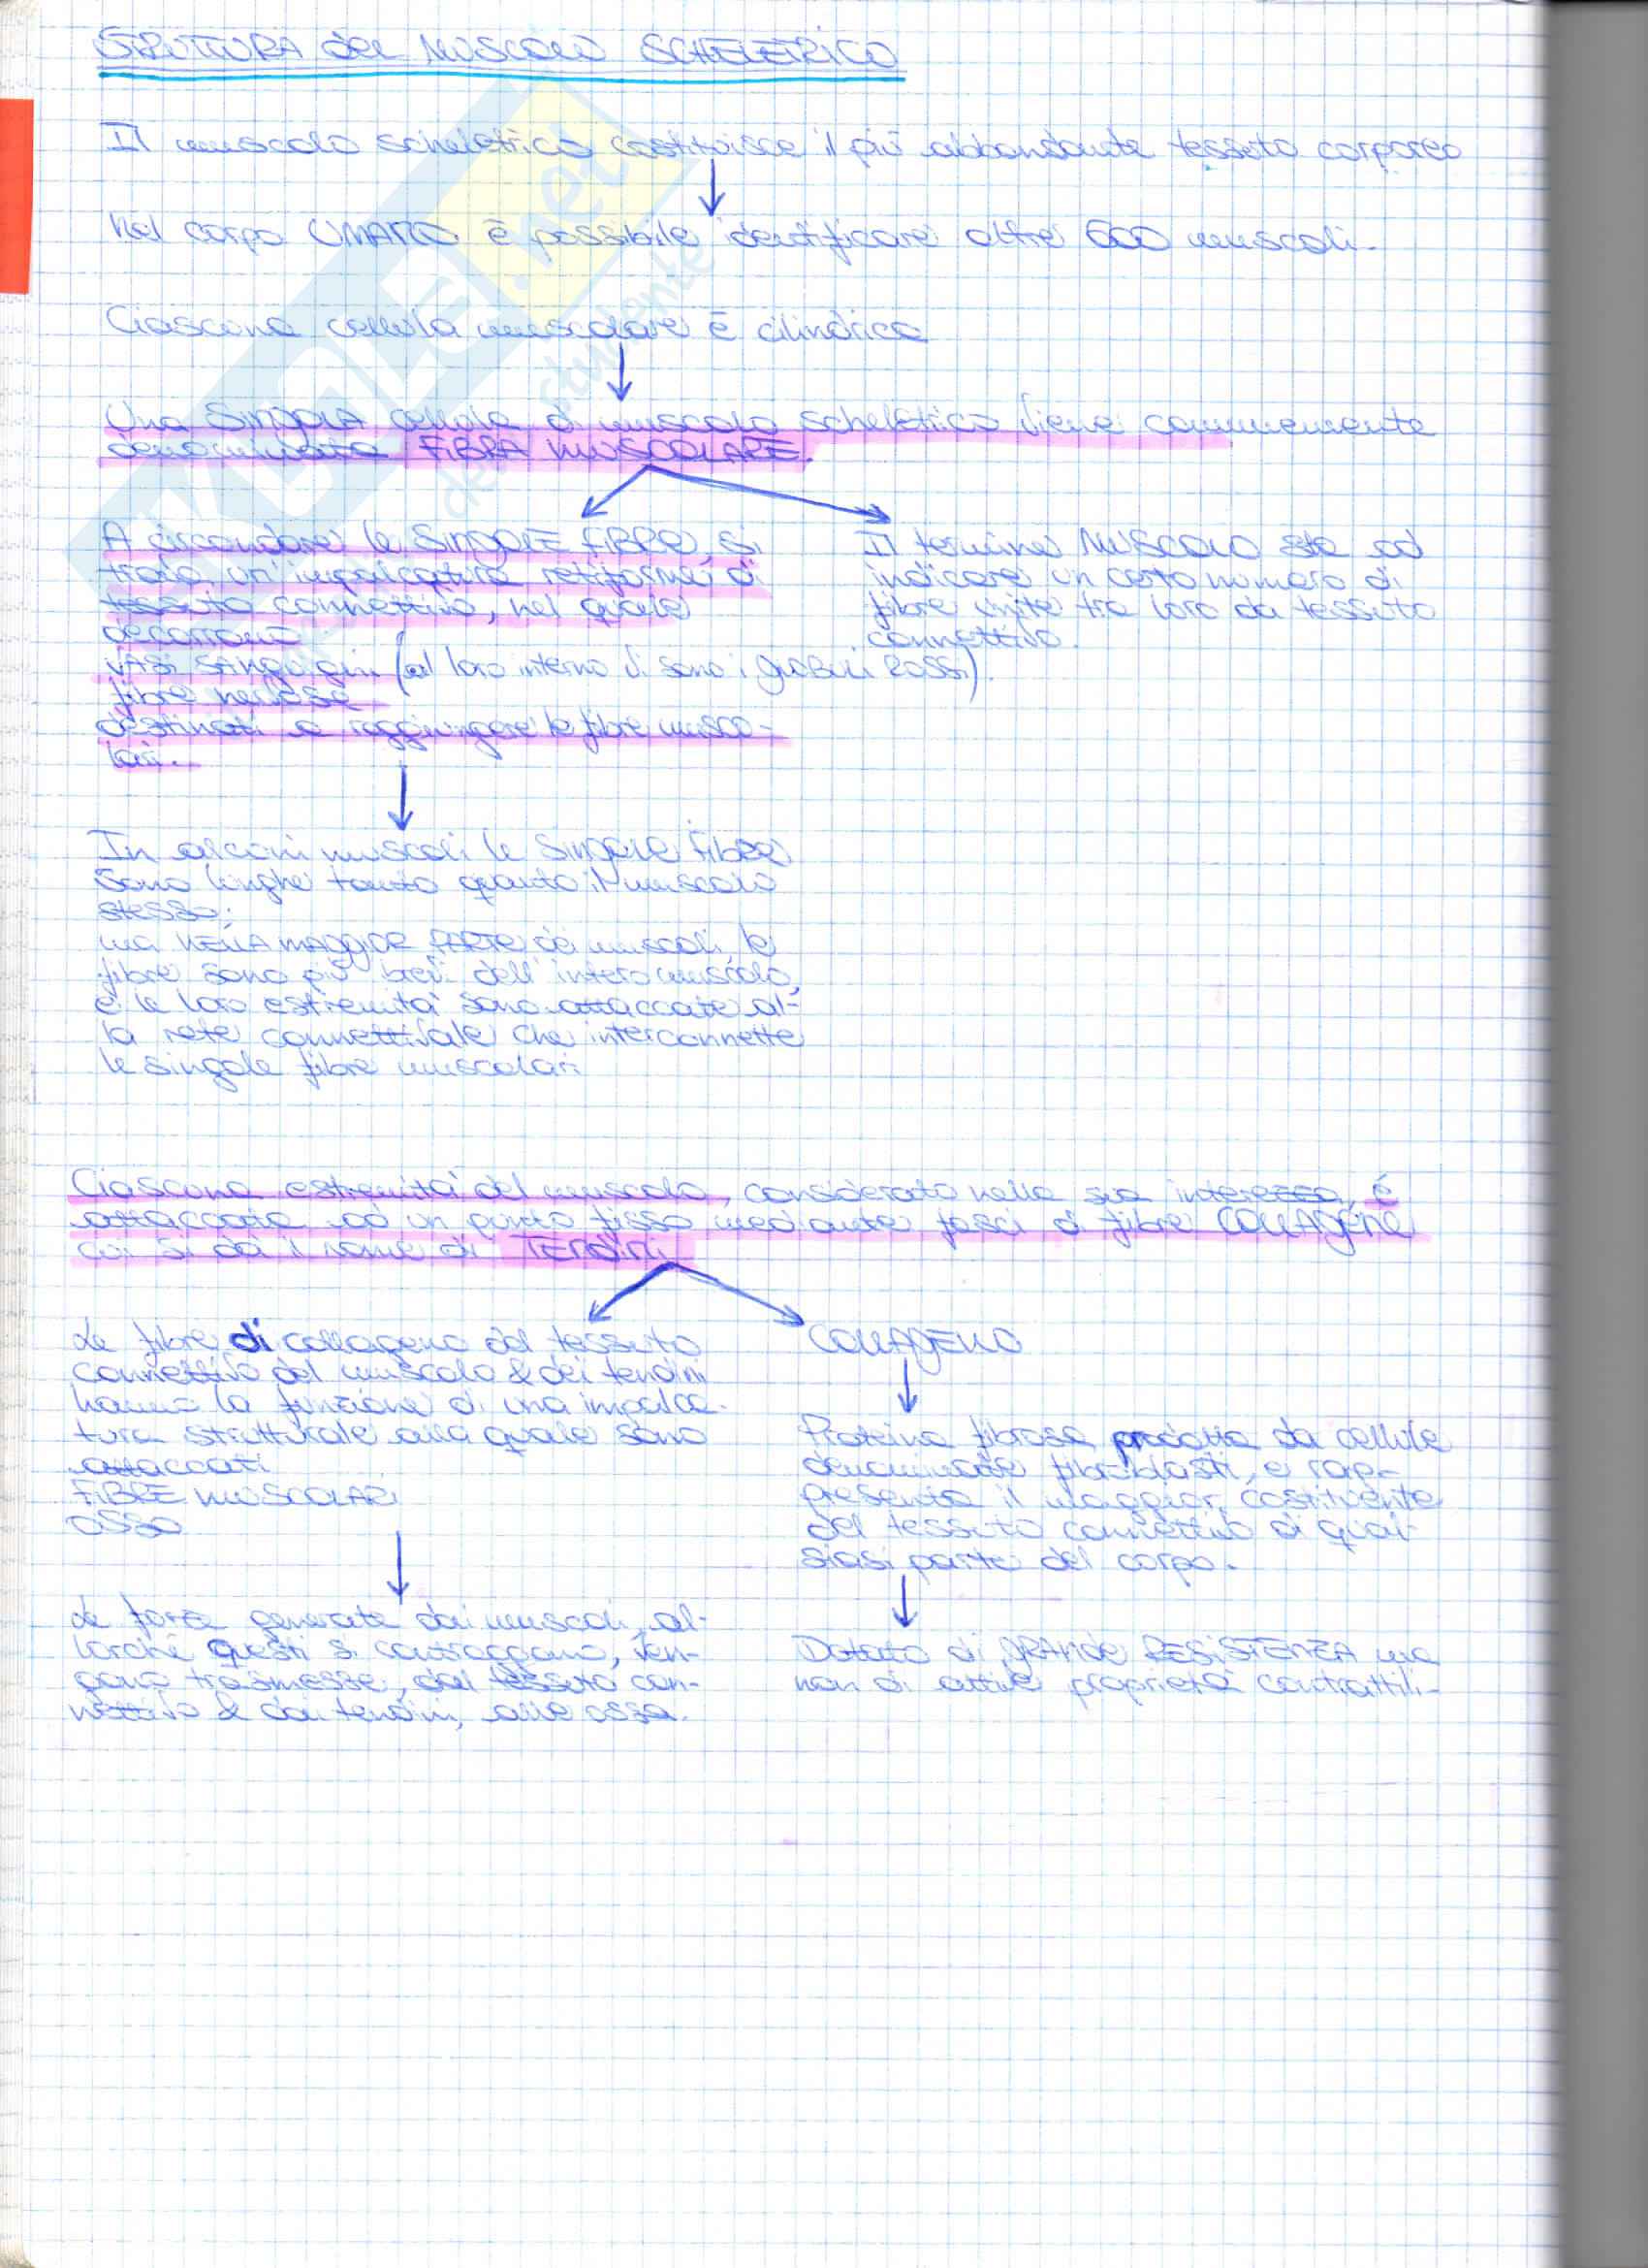 STRUTTURA del MUSCOLO SCHELETRICO
Il muscolo scheletrico costituisce il più abbondante tessuto corporeo
Nel corpo UMANO è possibile identificare oltre 600 muscoli.
Ciascuna cellula muscolare è cilindrica
Una SINGOLA cellula di muscolo scheletrico viene comunemente
denominata FIBRA MUSCOLARE.
A circondare le SINGOLE FIBRE, si
trova un'impalcatura retiforme di
tessuto connettivo, nel quale
decorrono
VASI sanguigni (al loro interno vi sono i globuli ROSSI).
fibre nervose
destinati a raggiungere le fibre musco-
lari.
Il termine MUSCOLO sta ad
indicare un certo numero di
fibre unite tra loro da tessuto
connettivo.
In alcuni muscoli le SINGOLE FIBRE
sono lunghe tanto quanto il muscolo
stesso;
ma NELLA MAGGIOR PARTE dei muscoli, le
fibre sono più brevi dell'intero muscolo,
e le loro estremità sono attaccate al-
la rete connettivale che interconnette
le singole fibre muscolari
Ciascuna estremità del muscolo, considerato nella sua interezza, è
attaccata ad un punto fisso mediante fasci di fibre COLLAGENE
cui si dà il nome di TENDINI
Le fibre di collagene del tessuto
connettivo del muscolo & dei tendini
hanno la funzione di una impalca-
tura strutturale alla quale sono
attaccati
FIBRE MUSCOLARI
OSSO
Le forze generate dai muscoli, al-
lorché questi si contraggono, ven-
gono trasmesse, dal tessuto con-
nettivo & dai tendini, alle ossa.
COLLAGENO
Proteina fibrosa prodotta da cellule
denominate fibroblasti, e rap-
presenta il maggior costituente
del tessuto connettivo di qual-
siasi parte del corpo.
Dotato di GRANDE RESISTENZA ma
non di attive proprietà contrattili-
.net
studente